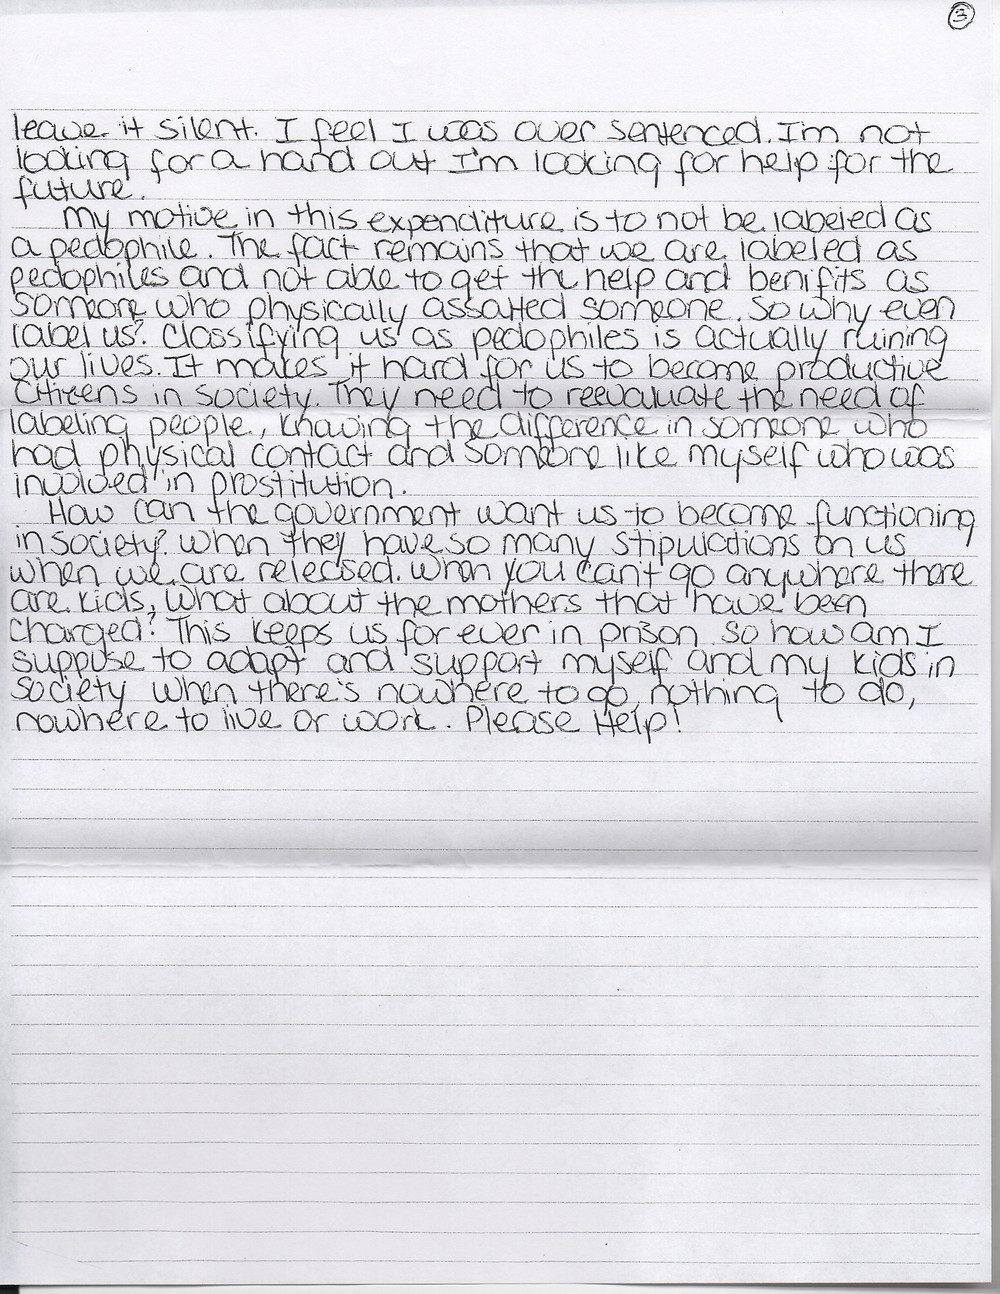 3
leave it silent. I feel I was over sentenced. I'm not
looking for a hand out I'm looking for help for the
future.
My motive in this expenditure is to not be labeled as
a pedophile. The fact remains that we are labeled as
pedophiles and not able to get the help and benifits as
someone who physically assalted someone. So why even
label us? Classifying us as pedophiles is actually ruining
our lives. It makes it hard for us to become productive
citizens in society. They need to reevaluate the need of
labeling people, knowing the difference in someone who
had physical contact and someone like myself who was
involved in prostitution.
How can the government want us to become functioning
in society? When they have so many stipulations on us
when we are released. When you can't go anywhere there
are kids, what about the mothers that have been
charged? This keeps us for ever in prison. So how am I
suppose to adapt and support myself and my kids in
society when there's nowhere to go, nothing to do,
nowhere to live or work. Please Help!